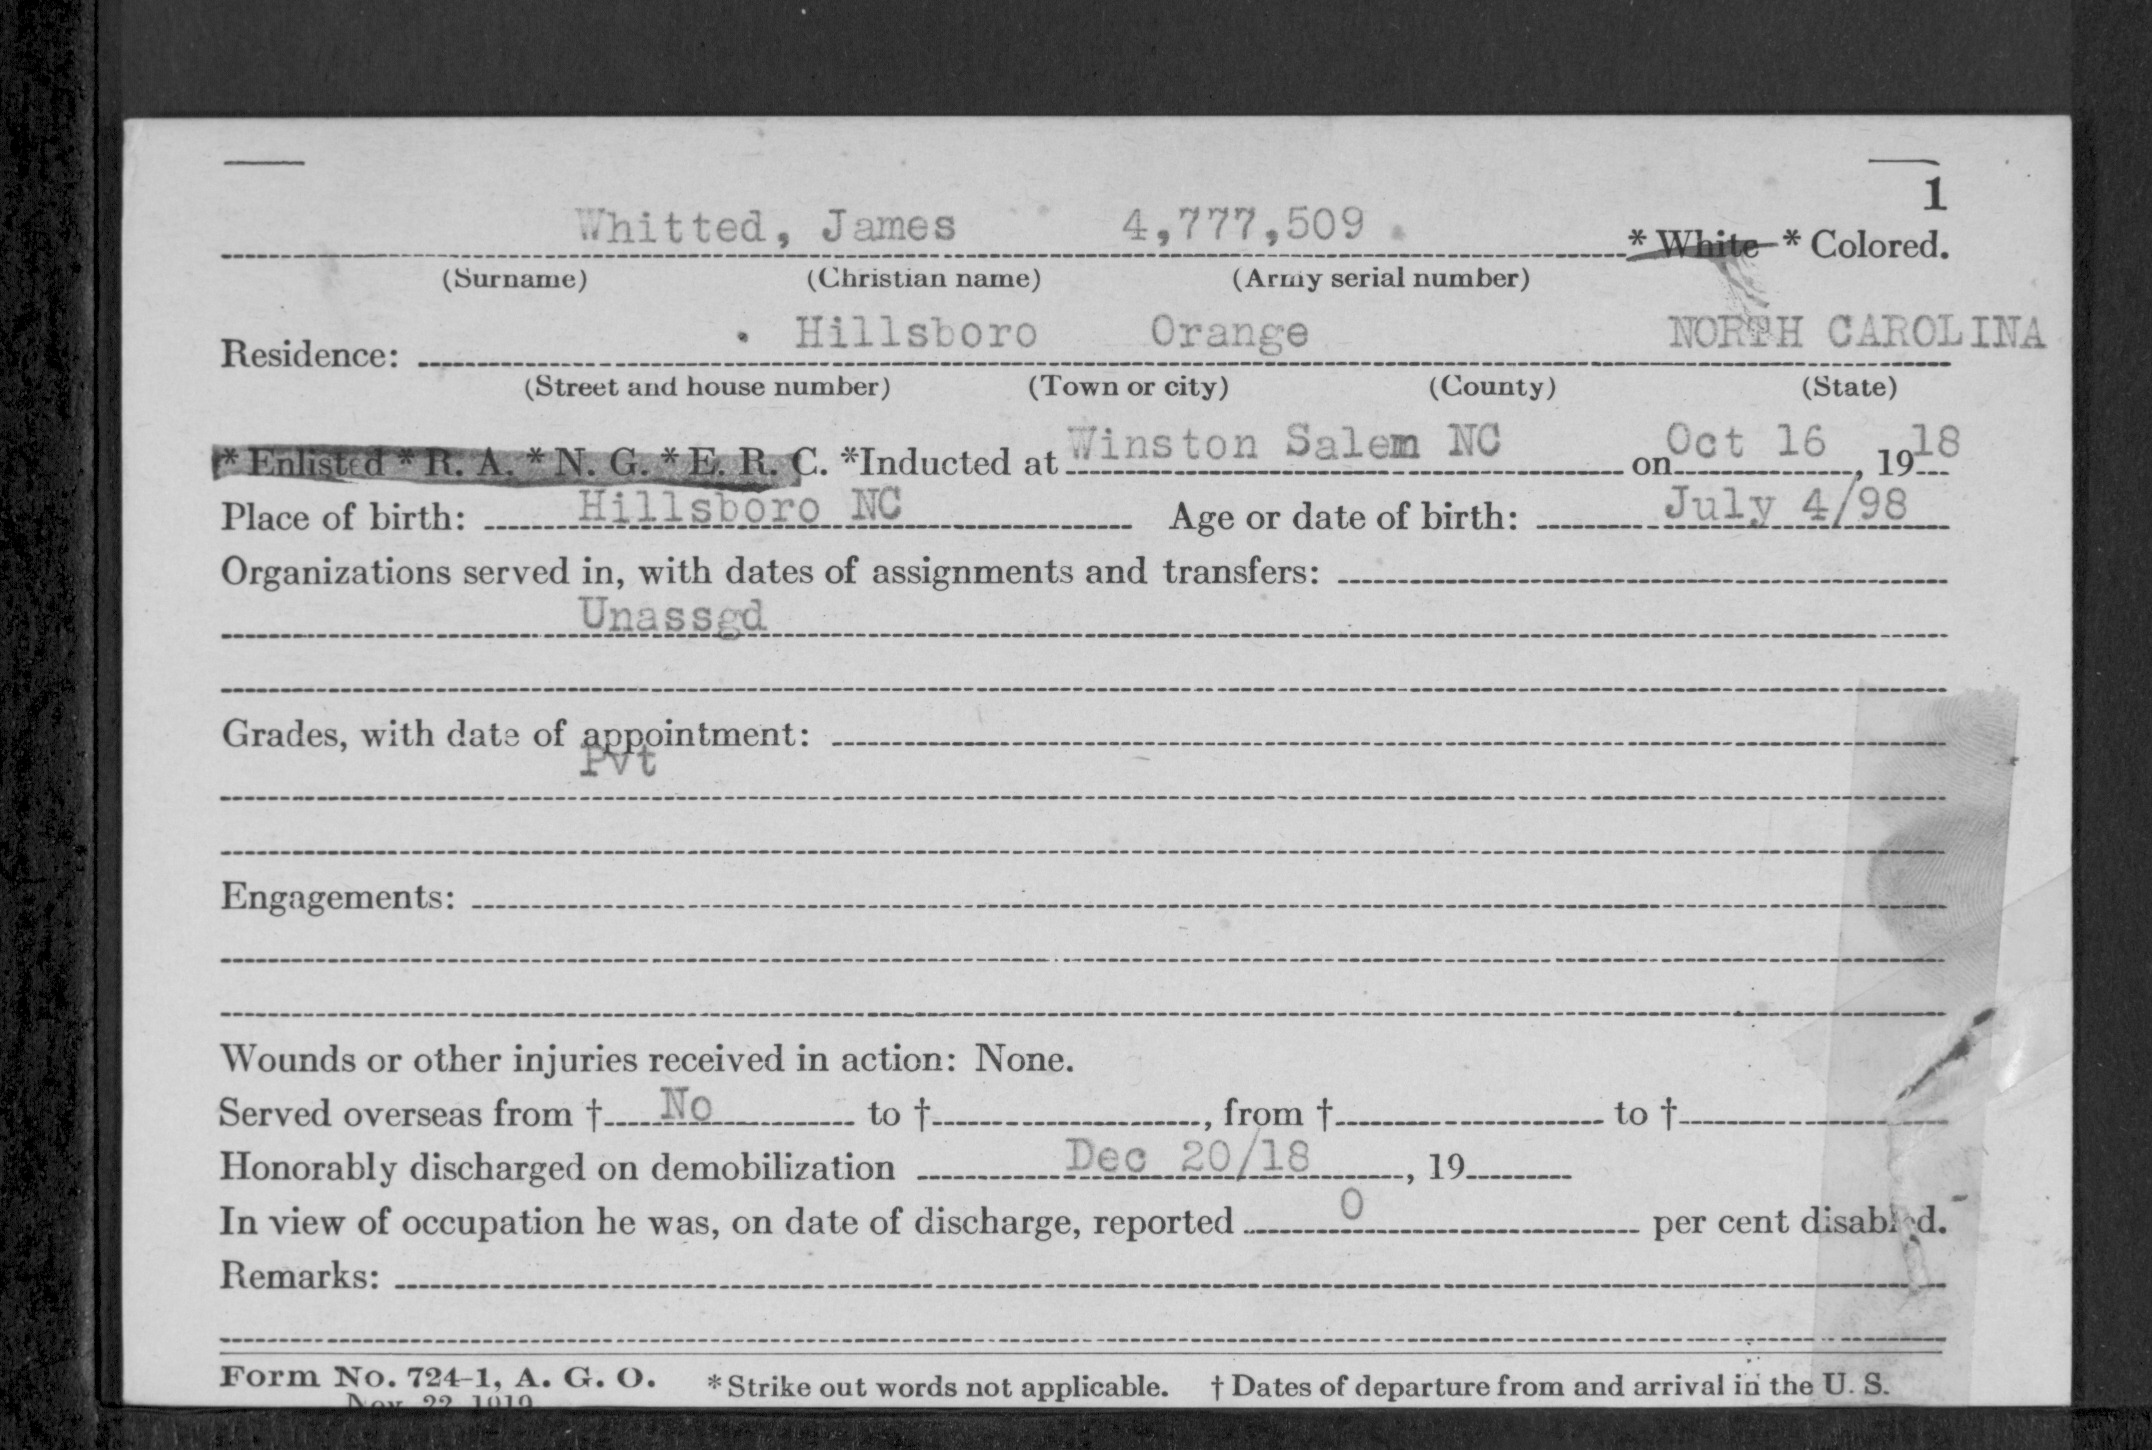 1
Whitted, James 4,777,509 * White * Colored.
(Surname) (Christian name) (Army serial number)
Residence: Hillsboro Orange NORTH CAROLINA
(Street and house number) (Town or city) (County) (State)
* Enlisted * R. A. * N. G. * E. R. C. *Inducted at Winston Salem NC on Oct 16, 1918
Place of birth: Hillsboro NC Age or date of birth: July 4/98
Organizations served in, with dates of assignments and transfers:
Unassgd
Grades, with date of appointment:
Pvt
Engagements:
Wounds or other injuries received in action: None.
Served overseas from † No to †, from † to †
Honorably discharged on demobilization Dec 20/18, 19
In view of occupation he was, on date of discharge, reported 0 per cent disabled.
Remarks:
Form No. 724-1, A. G. O. * Strike out words not applicable. † Dates of departure from and arrival in the U. S.
Nov. 22 1919